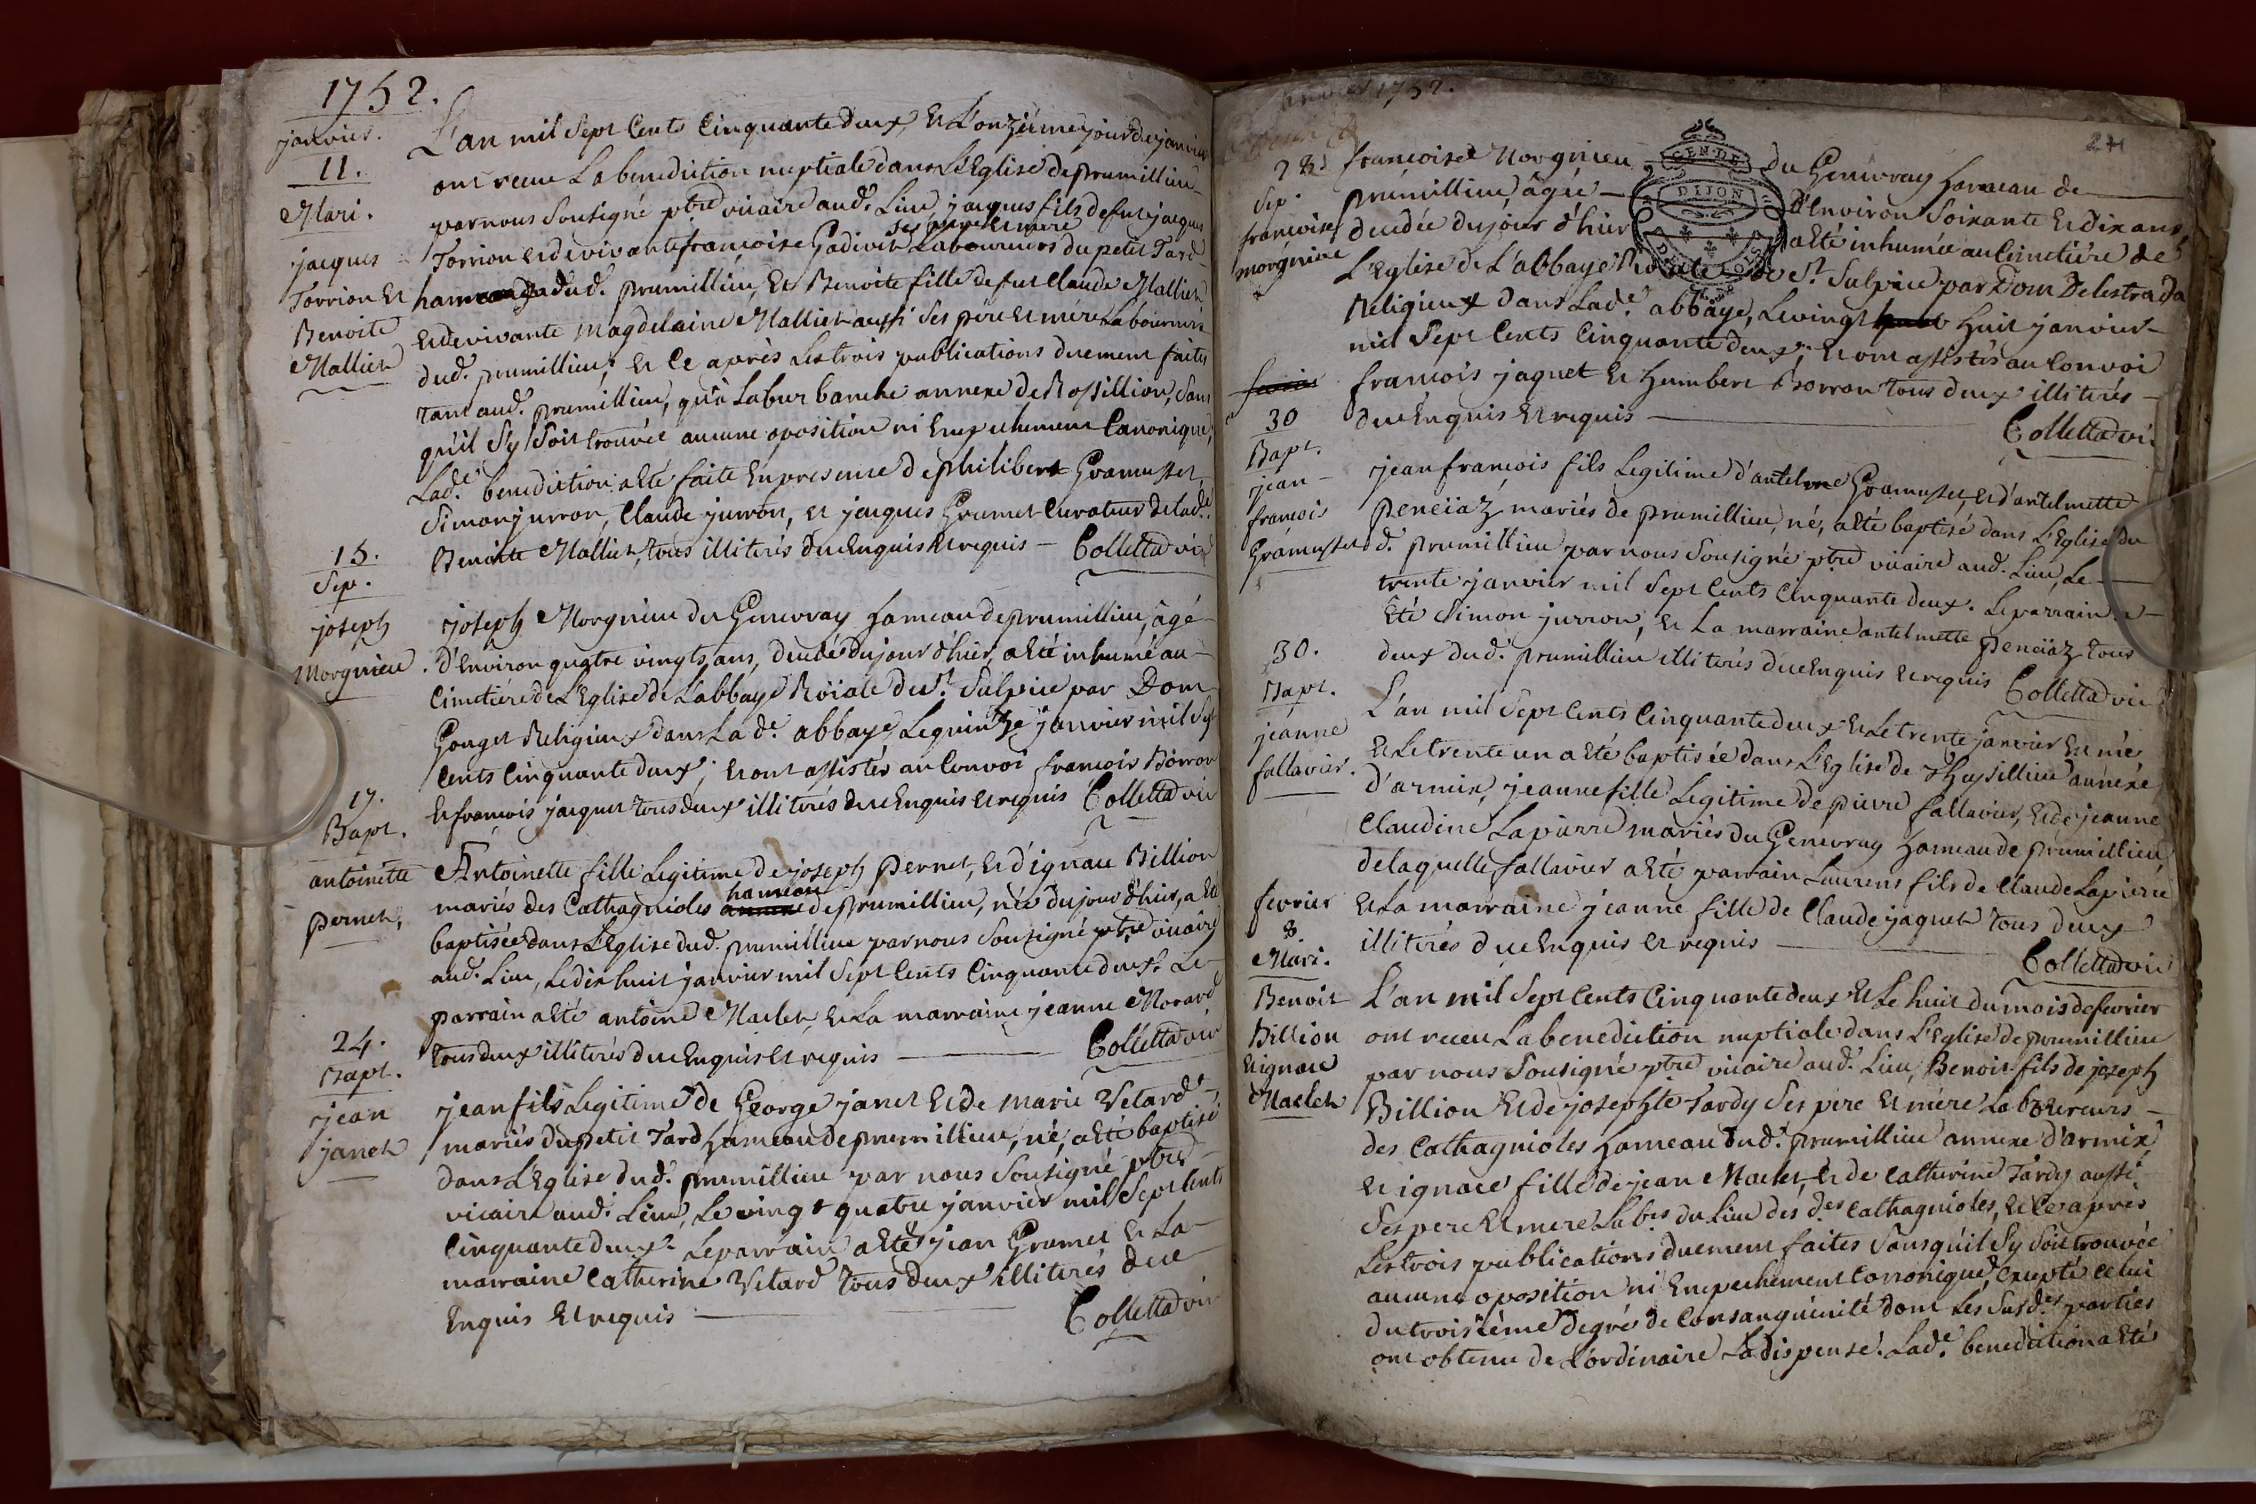 1752.
janvier.
11.
Mari.
jacques
Torrion et
Benoite
Mallier
L'an mil sept cents cinquante deux, et L'onziéme jour de janvier
ont receu La benediction nuptiale dans L'Eglise de prumillieu
par nous sousigné ptre vicaire aud. Lieu jacques fils de fut jacques
Torrion et de vivante françoise Gadivet ses père et mère Laboureurs du petit Tard
hameau dud. prumillieu, et Benoite fille de fut Claude Mallier
et de vivante Magdelaine Mallier aussi ses père et mère Laboureurs
dud. prumillieu; et ce après Les trois publications duement faites
tant aud. prumillieu, qu'à Laburbanche annexe de Rossillion, sans
qu'il s'y soit trouvée aucune oposition ni Empechement Canonique,
Lade. benediction a été faite en presence de philibert Gramusset,
Simon jurron, Claude jurron, et jacques Grumet Curateur de lade.
Benoite Mallier, tous illiterés de ce Enquis et requis — Colletta vic
15.
Sep.
joseph
Morgnieu.
joseph Morgnieu du Genevray hameau de prumillieu, âgé
d'Environ quatre vingts ans, decedé du jour d'hier, a été inhumé au
Cimetiére de L'Eglise de L'abbaye Roïale de st. Sulpice par Dom
Gouget Religieux dans La de. abbaye Le quinze janvier mil sept
cents cinquante deux; et ont assistés au Convoi francois Borron
et francois jacquet tous deux illiterés de ce Enquis et requis Colletta vic
17.
Bapt.
antoinette
pernet,
Antoinette fille Legitime de joseph pernet, et d'ignace Billion
mariés des Cathagnioles annexe hameau de prumillieu, née du jour d'hier, a été
baptisée dans L'Eglise dud. prumillieu par nous sousigné ptre vicaire
aud. Lieu, Le dix huit janvier mil sept cents cinquante deux. Le
parrain a été antoine Maclet, et La marraine jeanne Morard
tous deux illiterés de ce Enquis et requis — Colletta vic
24.
Bapt.
jean
janet
jean fils Legitime de George janet et de Marie Vetard
mariés du petit Tard hameau de prumillieu, né, a été baptisé
dans L'Eglise dud. prumillieu par nous sousigné ptre
vicaire aud. Lieu, Le vingt quatre janvier mil sept cents
cinquante deux. Le parrain a été jean Grumet et La
marraine Catherine Vetard tous deux illiterés de ce
Enquis et requis — Colletta vic
janvier 1752.
241
28.
Sep.
francoise
morgnieu
francoise Morgnieu du Genevray hameau de
prumillieu, âgée d'Environ soixante et dix ans,
decedée du jour d'hier a été inhumée au Cimetiére de
L'Eglise de L'abbaye Roïale de st. Sulpice par Dom Delestrada
Religieux dans Lade. abbaye, Le vingt huit janvier
mil sept cents cinquante deux; et ont assistés au Convoi
francois jaquet et humbert Borron tous deux illiterés
de ce Enquis et requis — Colletta vic
GEN. DE
DIJON
30
Bapt.
jean-
francois
Gramusset
jean francois fils Legitime d'antelme Gramusset, et d'antelmette
penciaz mariés de prumillieu, né, a été baptisé dans L'Eglise du
d. prumillieu par nous sousigné ptre vicaire aud. Lieu, Le
trente janvier mil sept cents cinquante deux. Le parrain a
été Simon jurron, et La marraine antelmette penciaz tous
deux dud. prumillieu illiterés de ce Enquis et requis Colletta vic
30.
Bapt.
jeanne
fallavier.
L'an mil sept cents cinquante deux et Le trente janvier est née
et Le trente un a été baptisée dans L'Eglise de Theysillieu annéxe
d'armix, jeanne fille Legitime de pierre fallavier, et de jeanne
Claudine Lapierre mariés du Genevray hameau de prumillieu
de laquelle fallavier a été parrain Laurens fils de Claude Lapierre
et La marraine jeanne fille de Claude jaquet tous deux
illiterés de ce Enquis et requis — Colletta vic
fevrier
8.
Mari.
Benoit
Billion
et ignace
Maclet
L'an mil sept cents cinquante deux et Le huit du mois de fevrier
ont receu La benediction nuptiale dans L'Eglise de prumillieu
par nous sousigné ptre vicaire aud. Lieu, Benoit fils de joseph
Billion et de josephte Tardy ses père et mère Laboureurs
des Cathagnioles hameau dud. prumillieu annexe d'armix,
et ignace fille de jean Maclet, et de Catherine Tardy aussi
ses pere et mere Labrs du Lieu des des. Cathagnioles, et ce après
Les trois publications duement faites sans qu'il s'y soit trouvée
aucune oposition ni Empechement Canonique, Excepté celui
du troisiéme degré de Consanguinité dont Les susdes. parties
ont obtenu de L'ordinaire La dispense. Lade. benediction a été